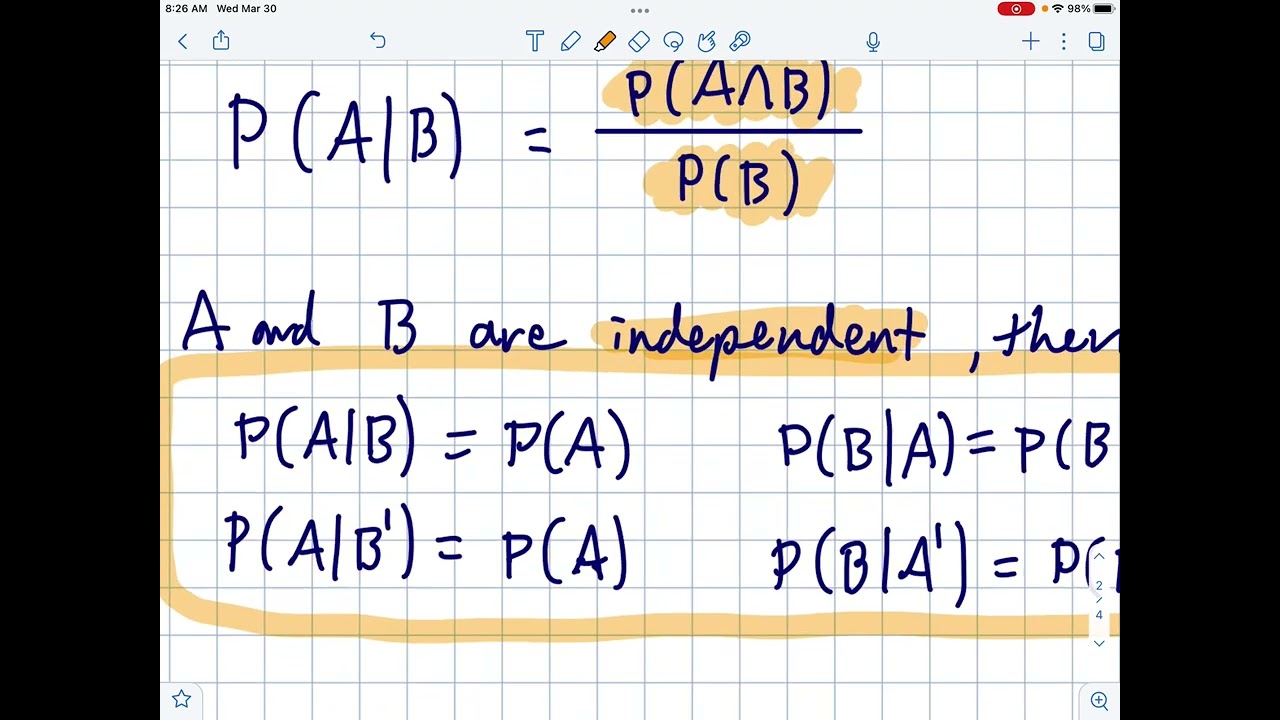 8:26 AM Wed Mar 30
98%
P(A|B) = P(A∩B) / P(B)
A and B are independent, then
P(A|B) = P(A) P(B|A) = P(B
P(A|B') = P(A) P(B|A') = P(
2
4